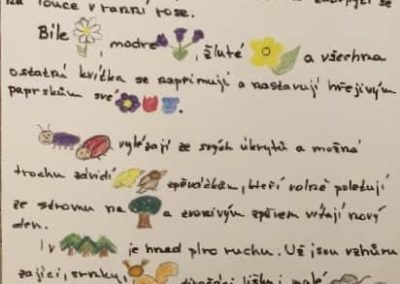 na louce v ranní rose.
Bílé , modré , žluté a všechna
ostatní kvítka se napřimují a nastavují hřejivým
paprskům své .
vylézají ze svých úkrytů a možná
trochu závidí zpěváčkům, kteří volně poletují
ze stromu na a zvonivým zpěvem vítají nový
den.
I v je hned plno ruchu. Už jsou vzhůru
zajíci, srnky, lišky i malé